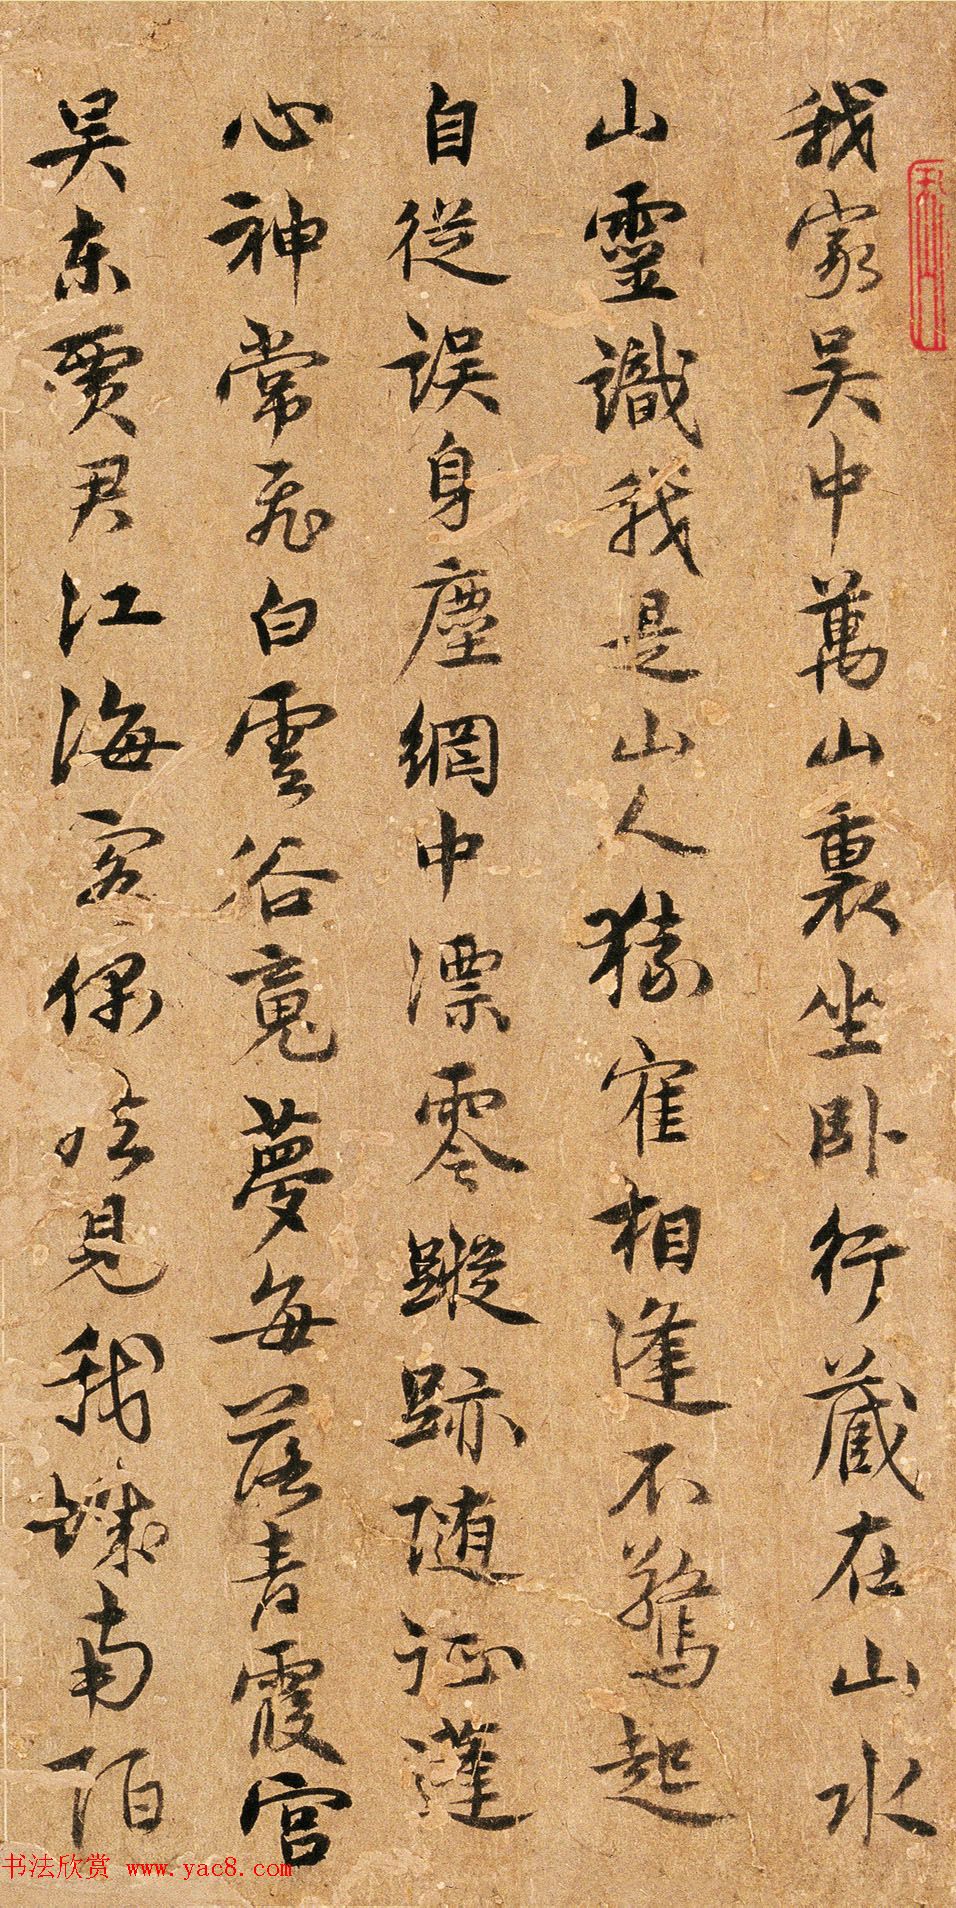 我家吴中萬山裏坐卧行藏在山水
山靈識我是山人猿寉相逢不驚起
自從误身塵網中漂零蹤跡随征蓬
心神常飛白雲谷竟夢每落青霞宫
吴東賈君江海客偶见我城南陌
书法欣赏 www.yac8.com